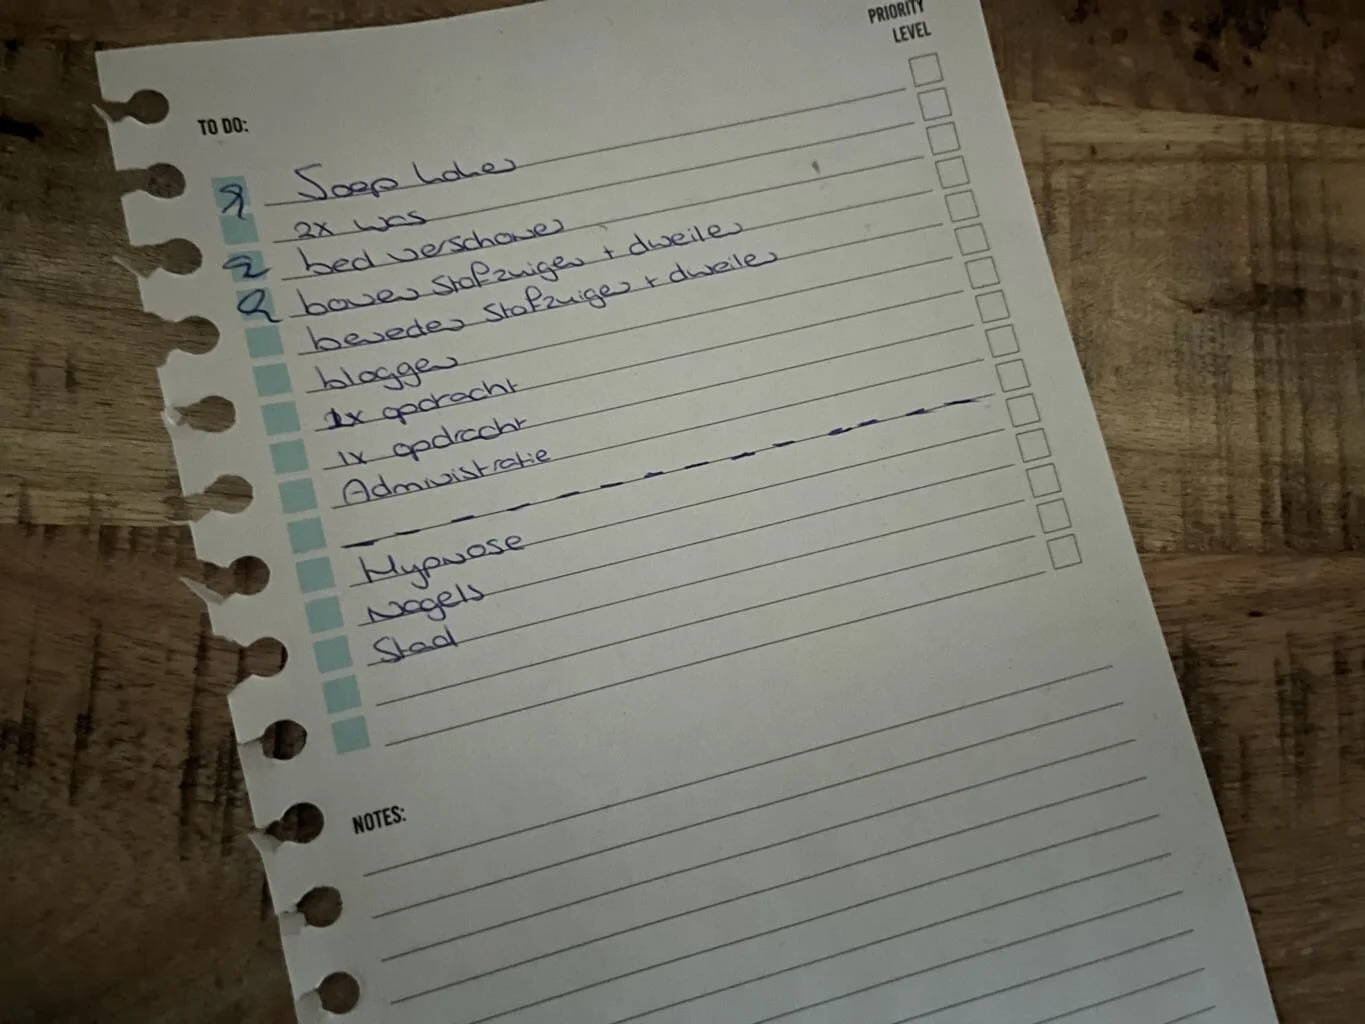 PRIORITY
LEVEL
TO DO:
Soep koken
2x was
bed verschonen
boven stofzuigen + dweilen
beneden stofzuigen + dweilen
bloggen
1x opdracht
1x opdracht
Administratie
Hypnose
Nagels
Stad
NOTES: